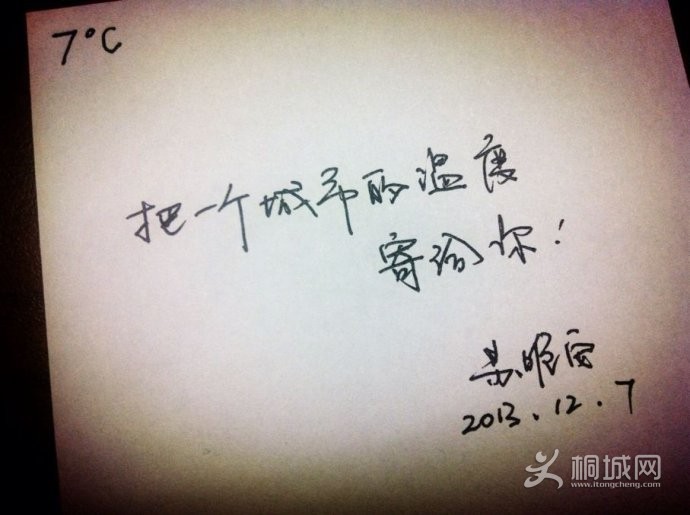 7°C
把一个城市的温度
寄给你!
2013.12.7
桐城网
www.itongcheng.com